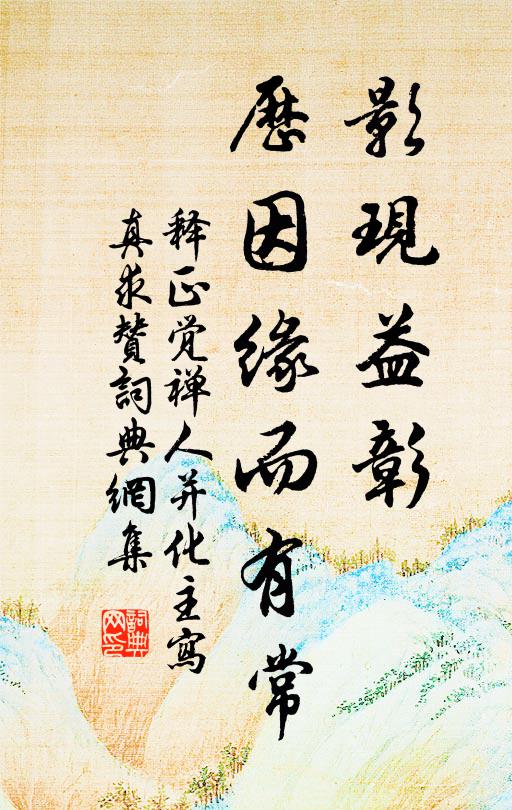 影現益彰
歷因緣而有常
释正觉禅人并化主寫
真求贊詞典網集
詞典
网印